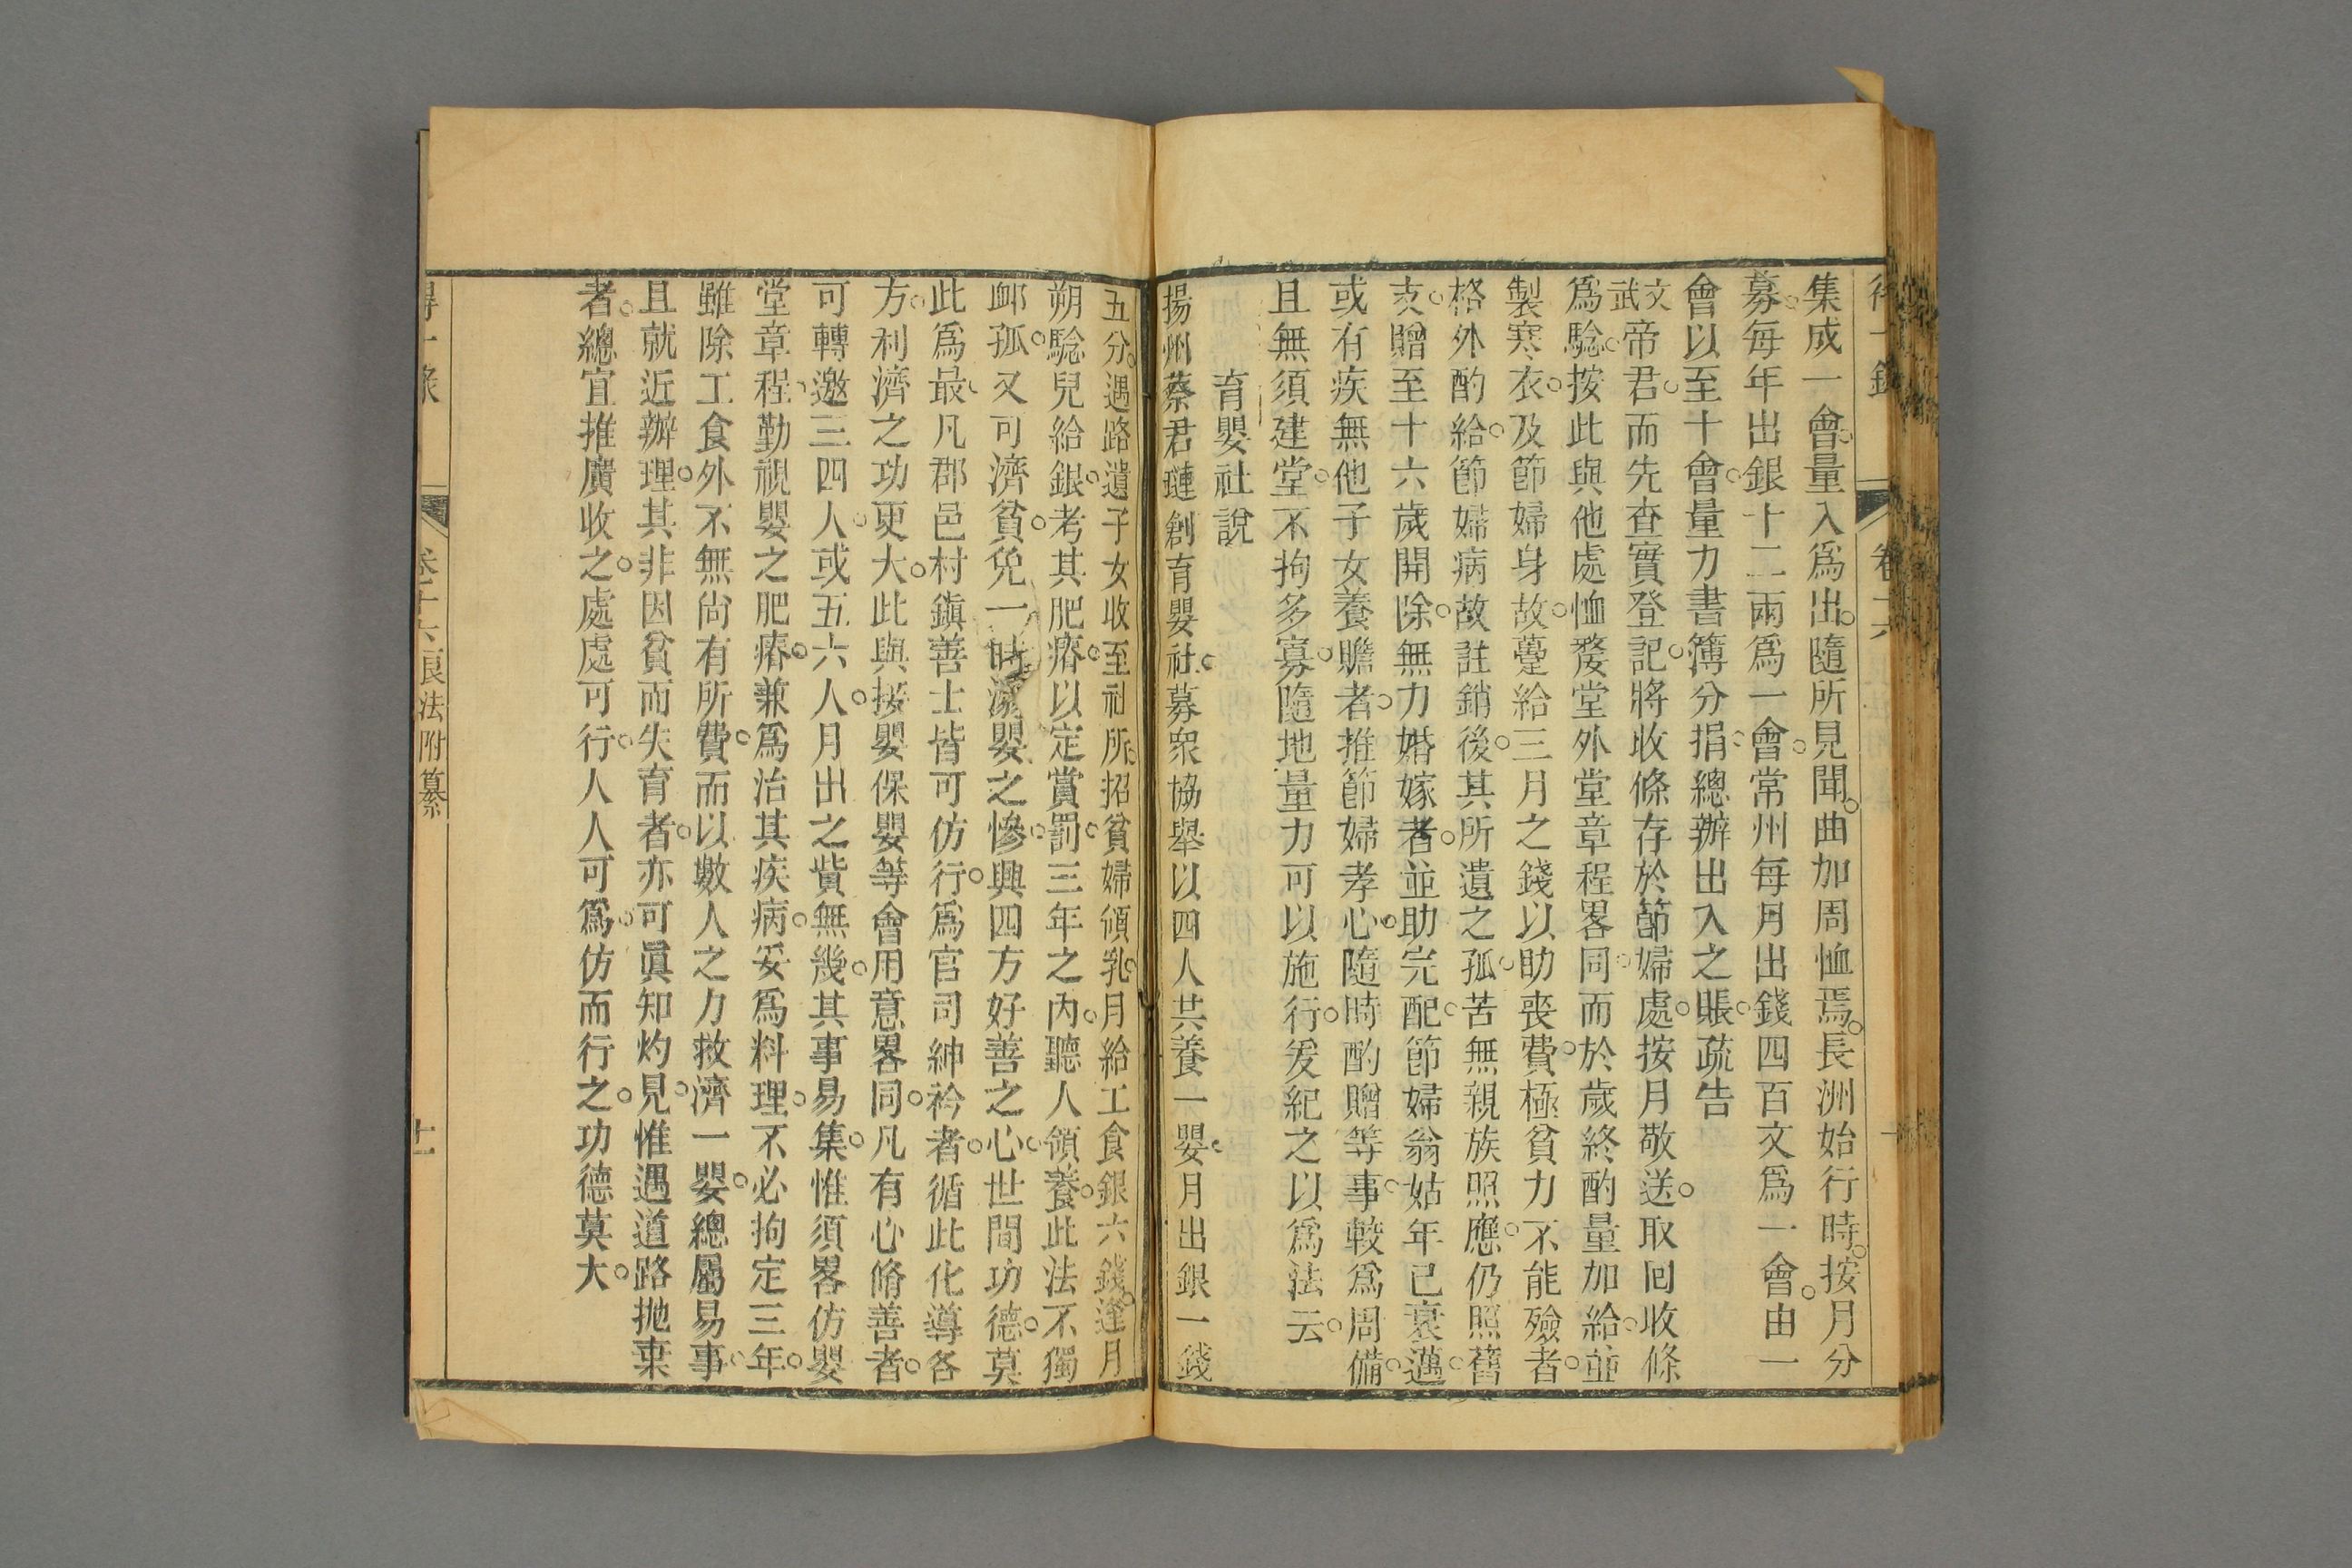 集成一會量入爲出。隨所見聞。曲加周恤焉。長洲始行時。按月分
募。每年出銀十二兩爲一會。常州每月出錢四百文爲一會。由一
會以至十會。量力書簿分捐。總辦出入之賬。疏告
文武帝君。而先查實登記。將收條存於節婦處。按月敬送。取回收條
爲騐。按此與他處恤嫠堂外堂章程畧同。而於歲終酌量加給。並
製寒衣。及節婦身故。憂給三月之錢以助喪費。極貧力不能殮者。
格外酌給。節婦病故註銷後。其所遺之孤。苦無親族照應。仍照舊
支。贈至十六歲開除。無力婚嫁者。並助完配。節婦翁姑年已衰邁。
或有疾無他子女養贍者。推節婦孝心。隨時酌贈等事。較爲周備。
且無須建堂。不拘多寡。隨地量力可以施行。爰紀之以爲法云。
育嬰社說
揚州蔡君璉創育嬰社。募衆協舉。以四人共養一嬰。月出銀一錢
五分。遇路遺子女收至社所。招貧婦領乳。月給工食銀六錢。逢月
朔驗兒給銀。考其肥瘠。以定賞罰。三年之內。聽人領養。此法不獨
卹孤。又可濟貧。免一時溺嬰之慘。興四方好善之心。世間功德。莫
此爲最。凡郡邑村鎮善士皆可仿行。爲官司紳衿者。循此化導各
方。利濟之功更大。此與按嬰保嬰等會用意畧同。凡有心脩善者。
可轉邀三四人。或五六人。月出之貲無幾。其事易集。惟須畧仿嬰
堂章程。勤視嬰之肥瘠。兼爲治其疾病。妥爲料理。不必拘定三年。
雖除工食外不無尙有所費。而以數人之力救濟一嬰。總屬易事。
且就近辦理。其非因貧而失育者。亦可眞知灼見。惟遇道路抛棄
者。總宜推廣收之。處處可行。人人可爲。仿而行之。功德莫大。
得一錄
卷十六良法附纂
十一